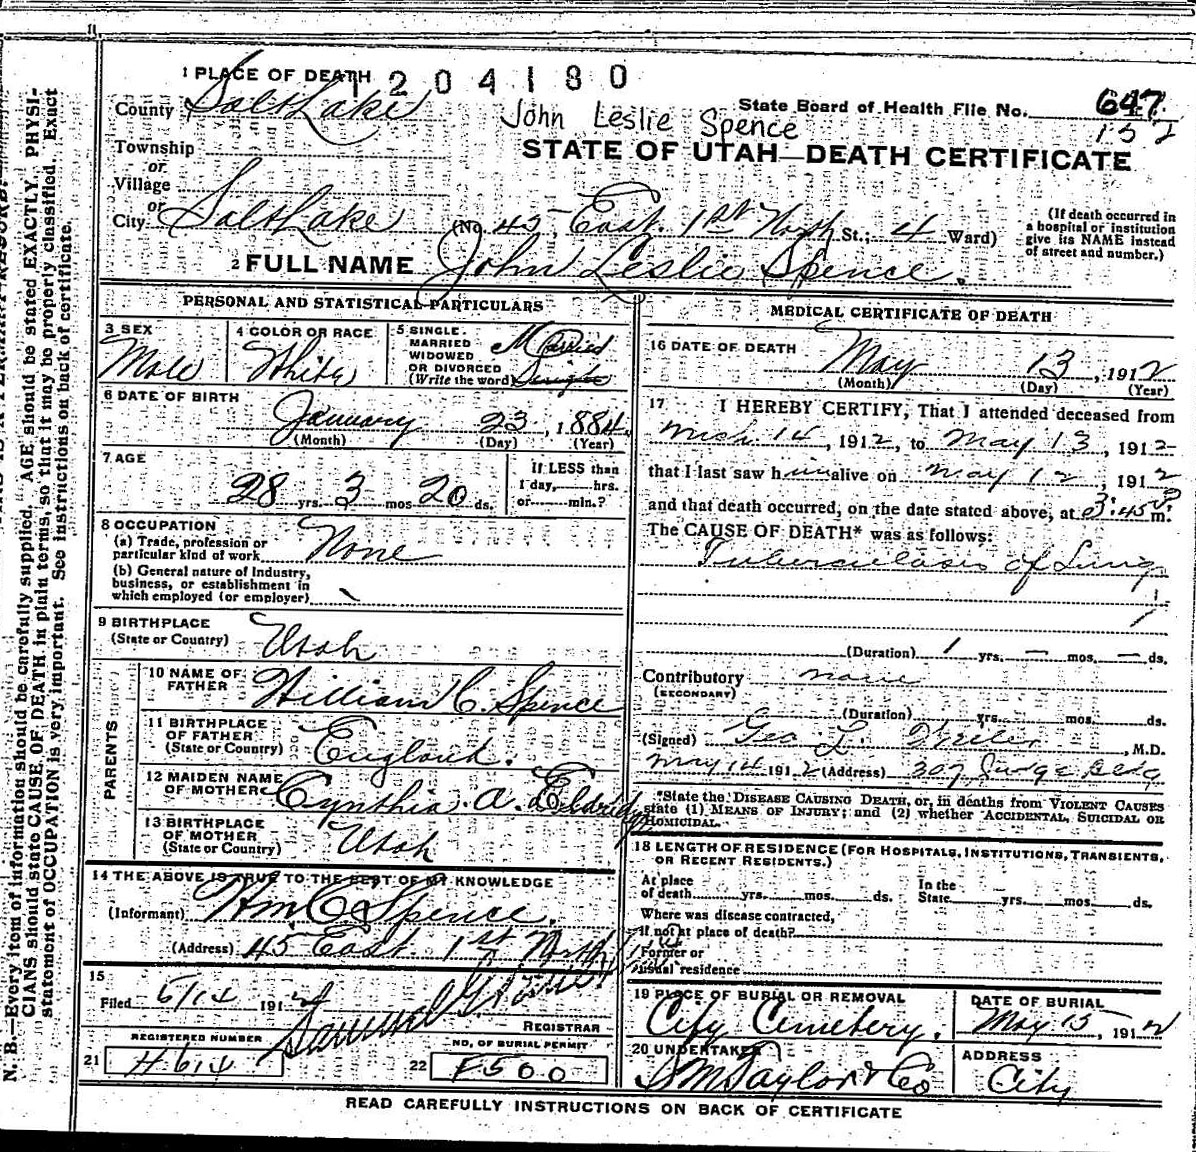 11
1 PLACE OF DEATH 1204180
County Salt Lake
John Leslie Spence
State Board of Health File No. 647
152
Township
or
Village
STATE OF UTAH—DEATH CERTIFICATE
or
City Salt Lake (No. 45 East 1st North St.; 4 Ward)
(If death occurred in
a hospital or institution
give its NAME instead
of street and number.)
2 FULL NAME John Leslie Spence.
PERSONAL AND STATISTICAL PARTICULARS
3 SEX
Male
4 COLOR OR RACE
White
5 SINGLE.
MARRIED
WIDOWED
OR DIVORCED
(Write the word)
Married
Single
6 DATE OF BIRTH
January 23, 1884.
(Month) (Day) (Year)
7 AGE
28 yrs. 3 mos 20 ds.
If LESS than
1 day, hrs.
or min.?
8 OCCUPATION
(a) Trade, profession or
particular kind of work None
(b) General nature of Industry,
business, or establishment in
which employed (or employer)
9 BIRTHPLACE
(State or Country) Utah
PARENTS
10 NAME OF
FATHER William C. Spence
11 BIRTHPLACE
OF FATHER
(State or Country) England.
12 MAIDEN NAME
OF MOTHER Cynthia A. Eldridge
13 BIRTHPLACE
OF MOTHER
(State or Country) Utah
14 THE ABOVE IS TRUE TO THE BEST OF MY KNOWLEDGE
(Informant) Wm C Spence.
(Address) 45 East 1st North
15
Filed 5/14 1912
Samuel G.
REGISTRAR
REGISTERED NUMBER
21 H614
NO. OF BURIAL PERMIT
22 F500
MEDICAL CERTIFICATE OF DEATH
16 DATE OF DEATH
May 13, 1912
(Month) (Day) (Year)
17 I HEREBY CERTIFY, That I attended deceased from
Mch 14, 1912, to May 13, 1912
that I last saw him alive on May 12, 1912
and that death occurred, on the date stated above, at 3:45 P m.
The CAUSE OF DEATH* was as follows:
Tuberculosis of Lung
(Duration) 1 yrs. — mos. — ds.
Contributory none
(SECONDARY)
(Duration) yrs. mos. ds.
(Signed) Geo L. M.D.
May 14 1912 (Address) 307 Judge Bldg
*State the DISEASE CAUSING DEATH, or, in deaths from VIOLENT CAUSES
state (1) MEANS OF INJURY; and (2) whether ACCIDENTAL, SUICIDAL OR
HOMICIDAL.
18 LENGTH OF RESIDENCE (FOR HOSPITALS, INSTITUTIONS, TRANSIENTS,
OR RECENT RESIDENTS.)
At place
of death yrs. mos. ds.
In the
State yrs. mos. ds.
Where was disease contracted,
if not at place of death?
Former or
usual residence
19 PLACE OF BURIAL OR REMOVAL
City Cemetery.
DATE OF BURIAL
May 15, 1912
20 UNDERTAKER
S M Taylor & Co
ADDRESS
City
READ CAREFULLY INSTRUCTIONS ON BACK OF CERTIFICATE
N. B.—Every item of information should be carefully supplied. AGE should be stated EXACTLY. PHYSI-
CIANS should state CAUSE OF DEATH in plain terms, so that it may be properly classified. Exact
statement of OCCUPATION is very important. See instructions on back of certificate.